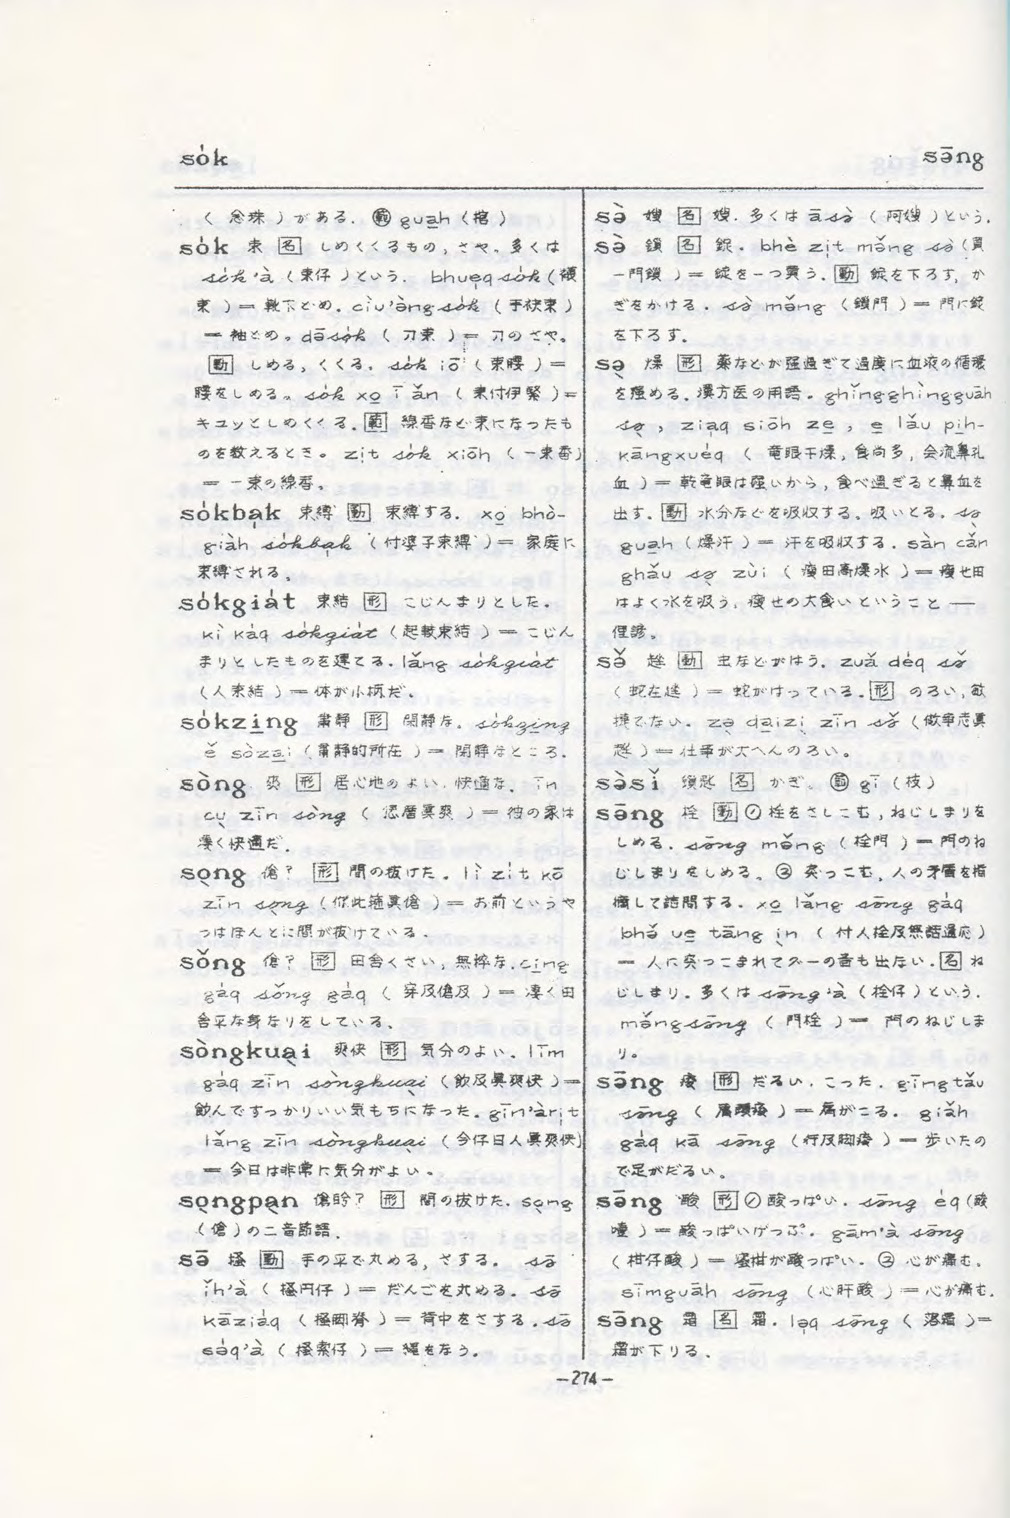 sók
sāng
( 念珠 ) がある. 範 guah (棺)
sók 束 名 しめくくるもの, さや. 多くは
sók'à (束仔) という.
束 ) = 靴下どめ. ciu'àng sók ( 手䘼束 )
= 袖どめ. dāsók ( 刀束 ) = 刀のさや.
動 しめる, くくる. sók iō ( 束腰 ) =
腰をしめる. sók xo ī ǎn ( 束付伊緊 ) =
キュッとしめくくる. 範 線香など束になったも
のを数えるとき. zit sók xiōh ( 一束香 )
= 一束の線香.
sókbak 束縛 動 束縛する. xo bhò-
giàh sókbak (付婆子束縛) = 家庭に
束縛される.
sókgiát 束結 形 こじんまりとした.
kì káq sókgiát (起較束結) = こじん
まりとしたものを建てる. lǎng sókgiát
(人束結) = 体が小柄だ.
sókzing 粛静 形 閑静な. sókzing
ě sòzai (粛静的所在) = 閑静なところ.
sòng 爽 形 居心地のよい. 快適な. īn
cu zīn sòng ( 𪜶厝真爽 ) = 彼の家は
凄く快適だ.
song 傖? 形 間の抜けた. lì zit kō
zīn song (你此箍真傖) = お前というや
つはほんとに間が抜けている.
sǒng 傖? 形 田舎くさい, 無粋な. cing
gáq sǒng gáq ( 穿及傖及 ) = 凄く田
舎卒な身なりをしている.
sòngkuai 爽快 形 気分のよい. līm
gáq zīn sòngkuai (飲及真爽快) =
飲んですっかりいい気もちになった. gīn'àrit
lǎng zīn sòngkuai (今仔日人真爽快)
= 今日は非常に気分がよい.
songpan 形 間の抜けた. song
(傖) の二音節語.
sə̄ 搔 動 手の平で丸める, さする. sə̄
ǐh'à ( 搔円仔 ) = だんごを丸める. sə̄
kāziáq ( 搔脚脊 ) = 背中をさする. sə̄
sə́q'à ( 搔索仔 ) = 縄をなう.
sə̀ 嫂 名 嫂. 多くは ā sə̀ ( 阿嫂 ) という.
sə̀ 鎖 名 錠. bhè zit mə̌ng sə̀ (買
一門鎖) = 錠を一つ買う. 動 錠を下ろす, か
ぎをかける. sə̀ mə̌ng (鎖門) = 門に錠
を下ろす.
sə 燥 形 薬などが強過ぎて過度に血液の循環
を強める. 漢方医の用語. ghǐngghìngguāh
sə, ziaq siōh ze, e lǎu pih-
kāngxuéq ( 竜眼干燥, 食尚多, 会流鼻孔
血 ) = 乾竜眼は強いから, 食べ過ぎると鼻血を
出す. 動 水分などを吸収する, 吸いとる. sə
guah (燥汗) = 汗を吸収する. sàn cǎn
ghǎu sə zùi ( 瘦田高燥水 ) = 瘦せ田
はよく水を吸う, 瘦せの大食いということ —
俚諺.
sə̌ 趖 動 虫などがはう. zuǎ déq sə̌
(蛇在趖) = 蛇がはっている. 形 のろい, 敏
捷でない. zə daizi zīn sə̌ (做事志真
趖) = 仕事が大へんのろい.
sə̀sǐ 鎖匙 名 かぎ. 範 gī (枝)
sə̄ng 栓 動 ㋑ 栓をさしこむ, ねじしまりを
しめる. sə̄ng mə̌ng (栓門) = 門のね
じしまりをしめる. ㋺ 突っこむ, 人の矛盾を指
摘して詰問する. xo lǎng sə̄ng gáq
bhə̌ ue tāng in ( 付人栓及無話通応 )
= 人に突っこまれてグーの音も出ない. 名 ね
じしまり. 多くは sə̄ng'à (栓仔) という.
mə̌ngsə̄ng ( 門栓 ) = 門のねじしま
り.
sə̄ng 痠 形 だるい, こった. gīngtǎu
sə̄ng ( 肩頭痠 ) = 肩がこる. giǎh
gáq kā sə̄ng (行及脚痠) = 歩いたの
で足がだるい.
sə̄ng 酸 形 ㋑ 酸っぱい. sə̄ng éq (酸
噎) = 酸っぱいげっぷ. gām'à sə̄ng
( 柑仔酸 ) = 蜜柑が酸っぱい. ㋺ 心が痛む.
sīmguāh sə̄ng (心肝酸) = 心が痛む.
sə̄ng 霜 名 霜. ləq sə̄ng ( 落霜 ) =
霜が下りる.
—274—